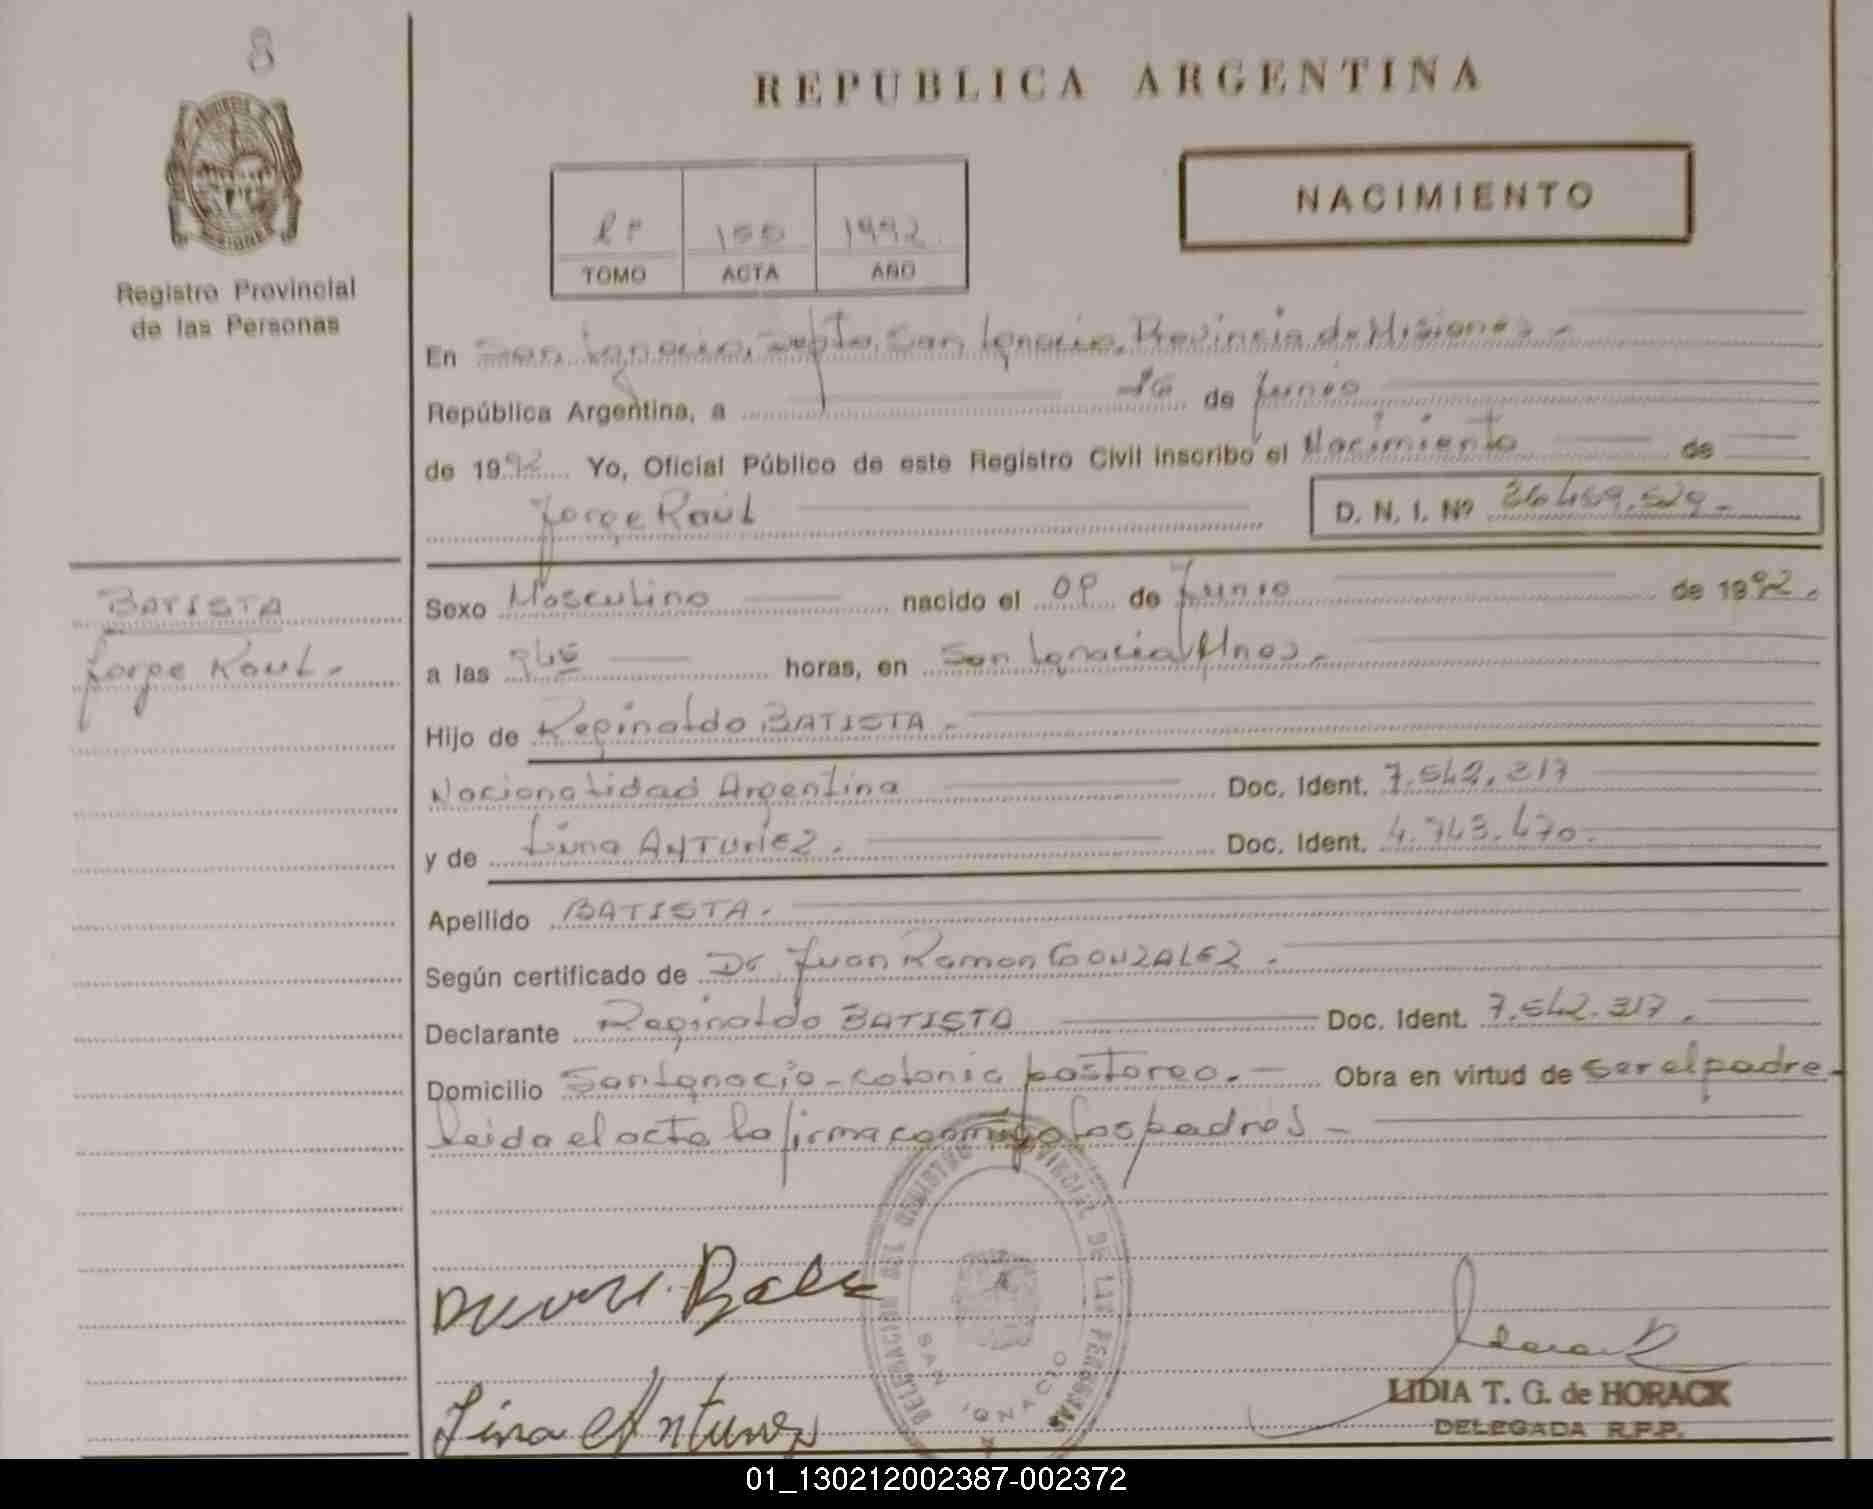 8
REPUBLICA ARGENTINA
NACIMIENTO
1992
TOMO ACTA AÑO
Registro Provincial
de las Personas
En San Ignacio, Depto. San Ignacio, Provincia de Misiones -
República Argentina, a 16 de Junio
de 1992 Yo, Oficial Público de este Registro Civil inscribo el Nacimiento de
Jorge Raúl D. N. I. Nº
BATISTA
Jorge Raul.
Sexo Masculino nacido el 09 de Junio de 1992.
a las horas, en San Ignacio Mnes.
Hijo de Reginaldo BATISTA.
Nacionalidad Argentina Doc. Ident. 7.542.317
y de Lina ANTUNEZ. Doc. Ident. 4.743.470.
Apellido BATISTA.
Según certificado de Dr Juan Ramon GONZALEZ.
Declarante Reginaldo BATISTA Doc. Ident. 7.542.317.
Domicilio San Ignacio - colonia pastoreo. - Obra en virtud de ser el padre -
leida el acta la firma conmigo los padres -
DELEGACION REGISTRO PROVINCIAL DE LAS PERSONAS
SAN IGNACIO
Lina Antunez
LIDIA T. G. de HORACK
DELEGADA R.P.P.
01_130212002387-002372